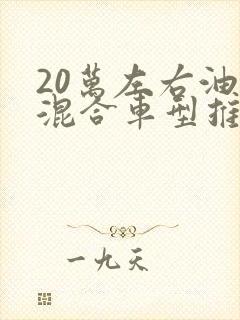 20萬左右油
混合車型推
一九天